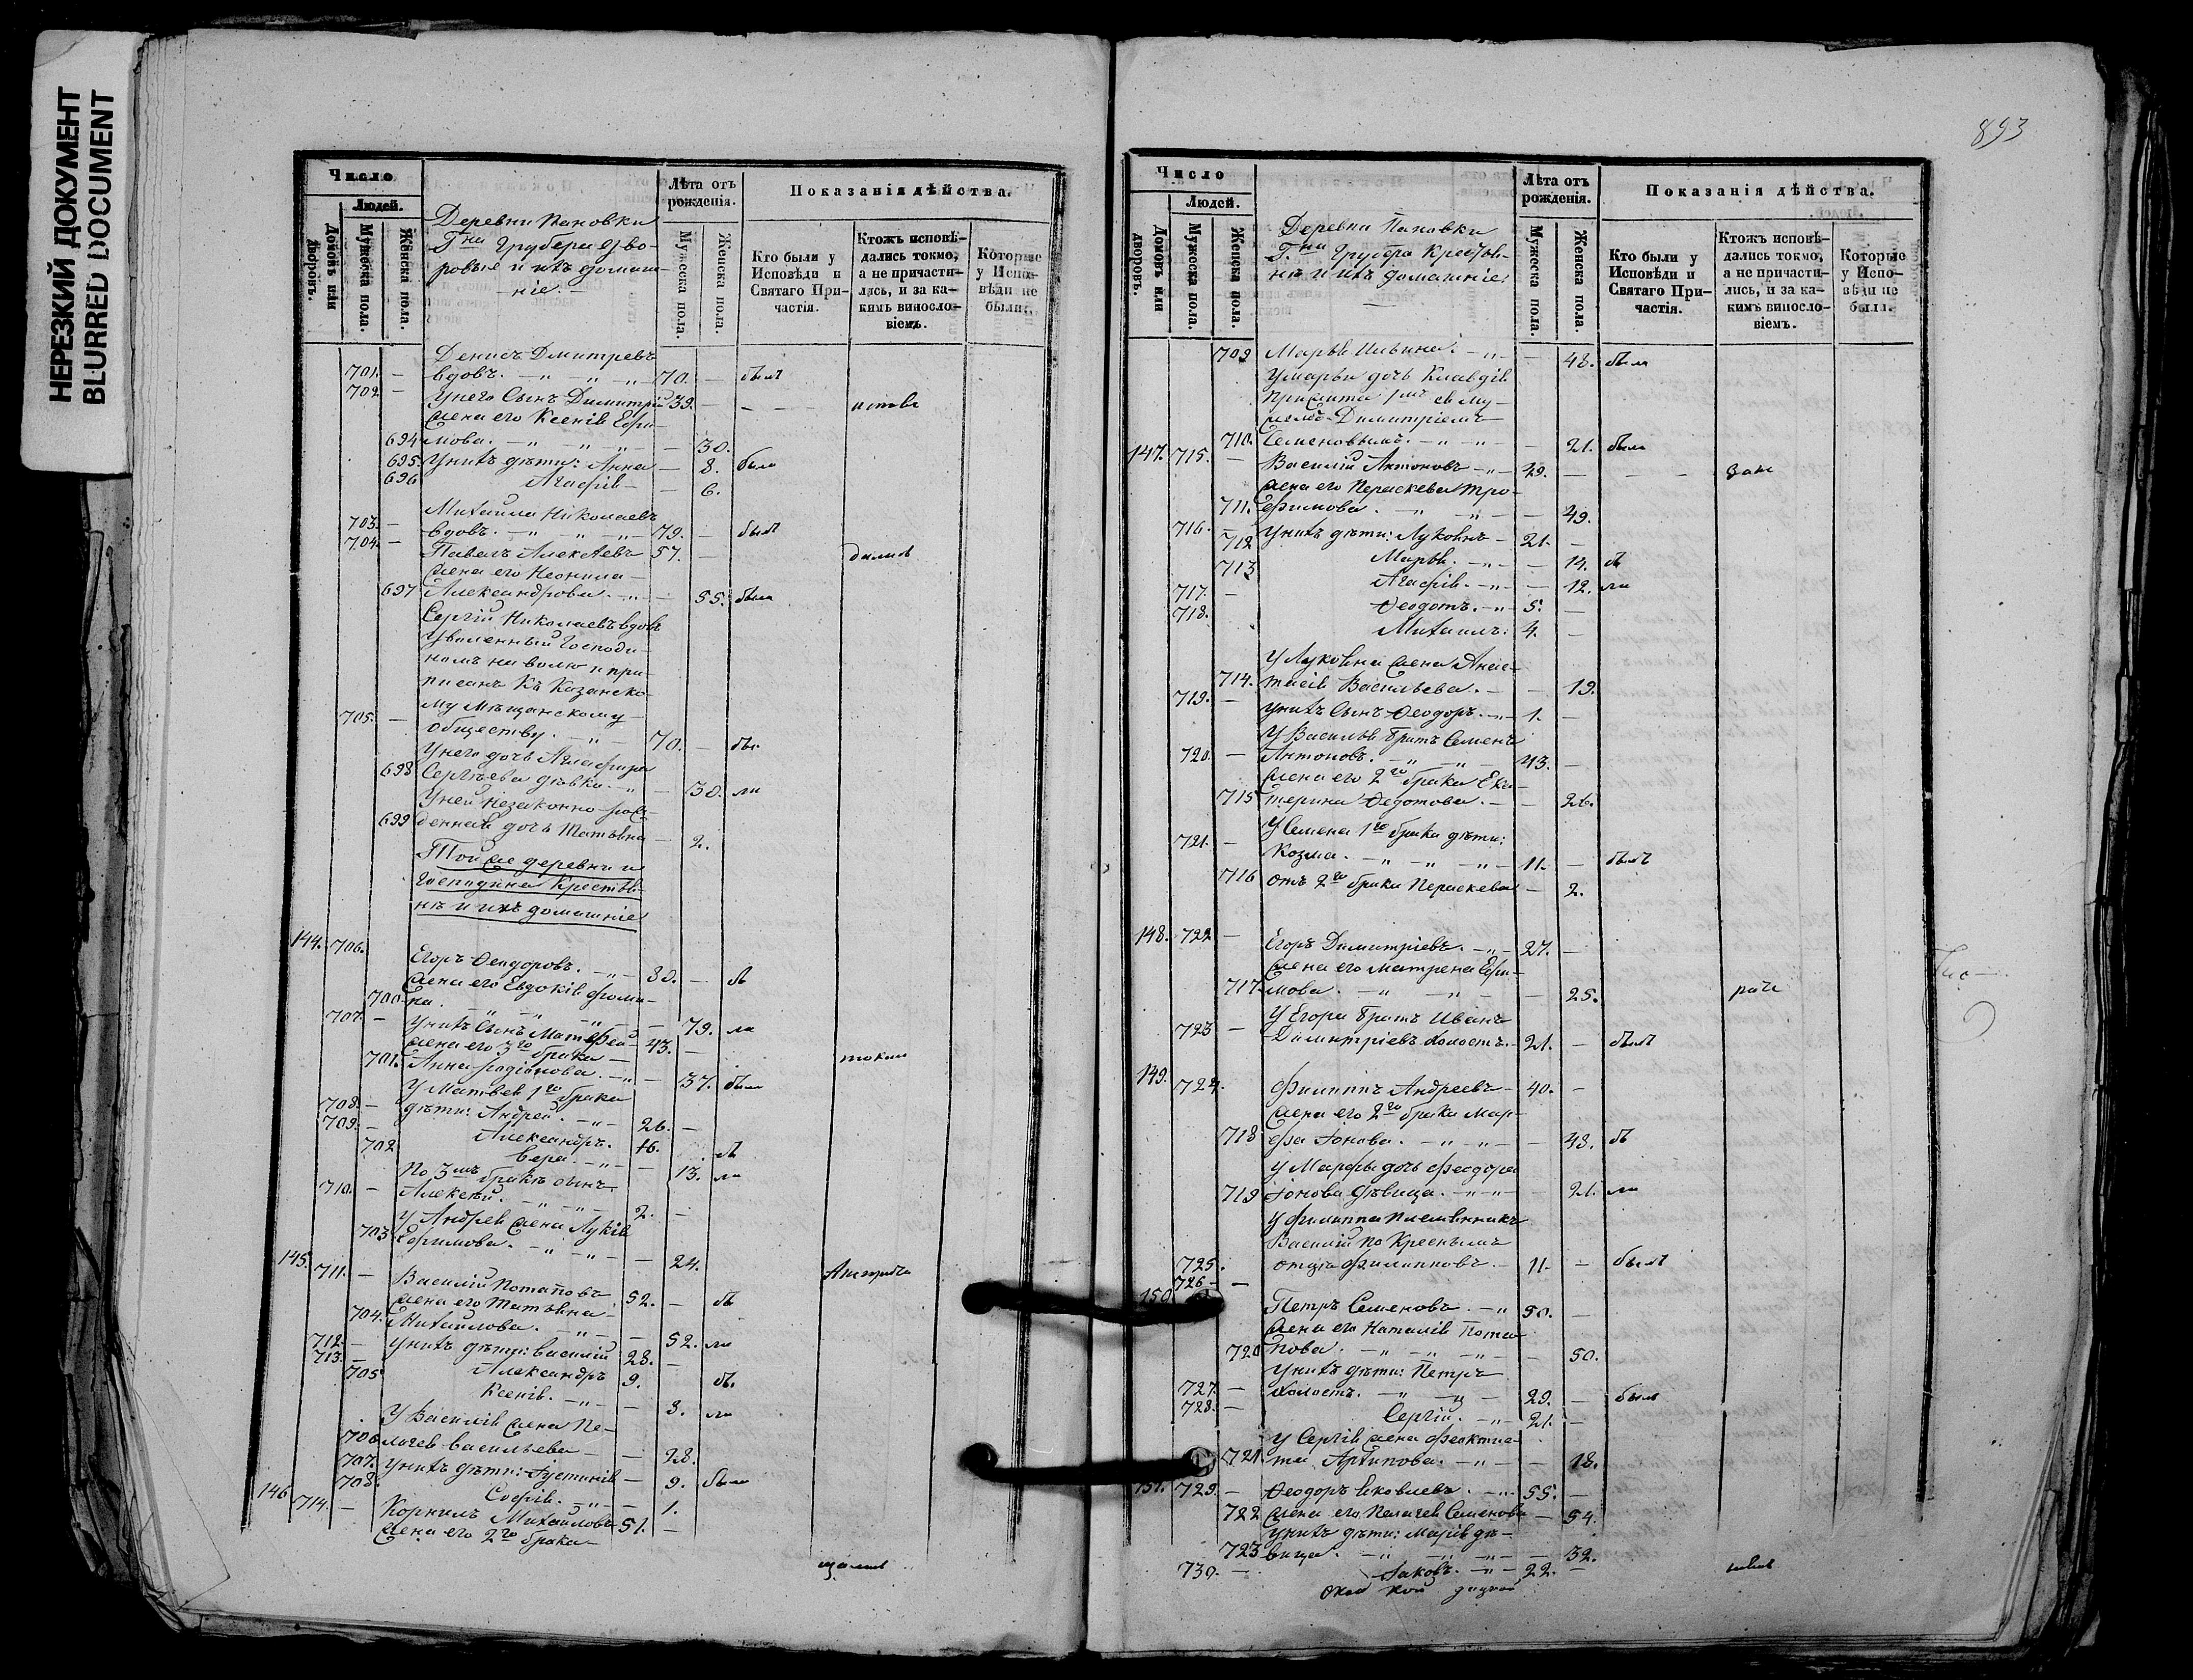 НЕРЕЗКИЙ ДОКУМЕНТ
BLURRED DOCUMENT
Число
Людей.
Домовъ или дворовъ.
Мужеска пола.
Женска пола.
Деревни Пановки
Г-на Грубера дво-
ровые и ихъ домаш-
ніе
Лѣта отъ рожденія.
Мужеска пола.
Женска пола.
Показанія дѣйства.
Кто были у Исповѣди и Святаго При-частія.
Ктожъ исповѣ-дались токмо, а не причасти-лись, и за ка-кимъ винословіемъ.
Которые у Испо-вѣди не были.
Денисъ Дмитревъ
701. — вдовъ. 70. — былъ
702. — У него сынъ Димитрій 39. —
жена его Ксенія Ефи-
694 мова. — 30.
695. У нихъ дѣти: Анна — 8. были
696 Агафія — 6.
Михаила Николаевъ
703. — вдовъ. 79. — былъ
704. — Павелъ Алексѣевъ 57. —
жена его Неонила
697 Александрова. — 55. были
Сергій Николаевъ вдовъ
уволенный Господи-
номъ на волю и при-
писанъ къ Казанско-
му мѣщанскому
705. — обществу. 70. — бы
У него дочь Аглафира
698 Сергѣева дѣвка. — 30. ли
У ней незаконно-рож-
699 денная дочь Татьяна — 2.
Той же деревни и
господина Крестья-
нѣ и ихъ домашніе
144. 706. Егоръ Феодоровъ. 80. — бы
жена его Евдокія Фоми-
700 на. — 79. ли
707. — У нихъ сынъ Матѳей 43. —
жена его 3го брака
701. Анна Родіонова. — 37. были
У Матвея 1го брака
708. — дѣти: Андрей. 26. —
709. — Александръ. 16. бы
702 Вера. — 13. ли
По 3мъ бракѣ сынъ
710. — Алексѣй. 2. —
У Андрея жена Лукія
703 Ефимова. — 24.
145. 711. — Василій Потаповъ 52. — бы
жена его Татьяна
704. Михайлова. — 52. ли
712. — У нихъ дѣти: Василій 28. —
713. — Александръ 9. бы
705 Ксенія. — 3. ли
У Василія жена Пе-
706 лагея Васильева — 28.
707. У нихъ дѣти: Іустинія — 9. были
708. Софія. — 1.
146 714. — Корнилъ Михайловъ 51. —
жена его 2го брака
893
Число
Людей.
Домовъ или дворовъ.
Мужеска пола.
Женска пола.
Деревни Пановки
Г-на Грубера Крестья-
нѣ и ихъ домашніе
Лѣта отъ рожденія.
Мужеска пола.
Женска пола.
Показанія дѣйства.
Кто были у Исповѣди и Святаго При-частія.
Ктожъ исповѣ-дались токмо, а не причасти-лись, и за ка-кимъ винословіемъ.
Которые у Испо-вѣди не были.
709 Марья Ильина. — 48. была
У Марьи дочь Клавдія
710. Семеновымъ. — 21. была
147. 715. — Василій Антоновъ 49. —
жена его Параскева Тро-
711. фимова. — 49.
716. — У нихъ дѣти: Лукоянъ 21. —
712 Марья. — 14. бы
713 Агафія. — 12. ли
717. — Феодотъ. 5. —
718. Михаилъ: 4. —
У Лукояна жена Анас-
714. тасія Васильева. — 19.
719. — У нихъ сынъ Феодоръ. 1. —
У Василья братъ Семенъ
720. — Антоновъ. 43. —
жена его 2го брака Ека-
715 терина Федотова. — 26.
У Семена 1го брака дѣти:
721. — Козма. 11. — былъ
716 отъ 2го брака Параскева — 2.
148. 722 — Егоръ Димитріевъ. 27. —
жена его Матрена Ефи-
717 мова. — 25.
У Егора братъ Иванъ
723 — Димитріевъ холостъ. 21. — былъ
149. 724. Филиппъ Андреевъ 40. —
жена его 2го брака Мар-
718 фа Іонова. — 43. бы
У Марфы дочь Феодора
719 Іонова дѣвица. — 21. ли
У Филиппа племянникъ
Василій по Крестнымъ
725. отцѣ Филипповъ. 11. — былъ
150 726 — Петръ Семеновъ. 50. —
жена его Наталія Пота-
720 пова. — 50.
У нихъ дѣти: Петръ
727. — холостъ. 29. — были
728. — Сергій. 21. —
У Сергія жена Феоктис-
721 та Архипова. — 18.
151. 729. — Феодоръ Яковлевъ. 55. —
722 жена его Пелагея Семенова — 54.
У нихъ дѣти: Марія дѣ-
723 вица. — 32.
730. — Іаковъ. 22. —